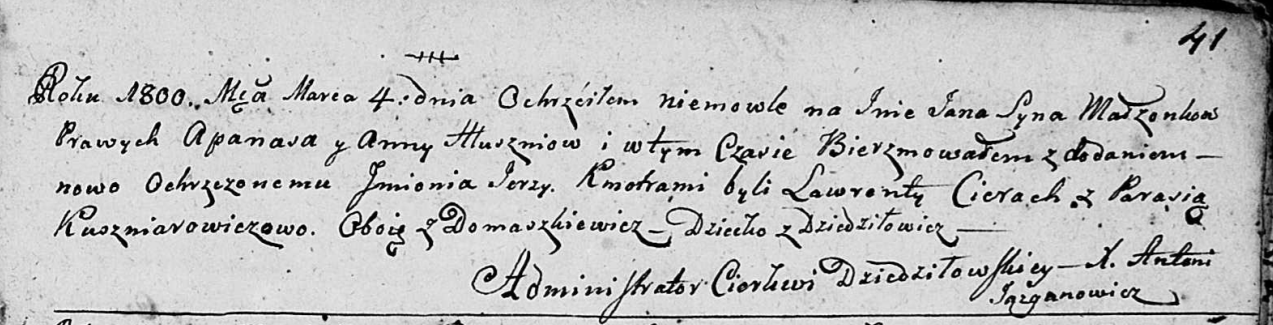 41
Roku 1800. Mca Marca 4: dnia Ochrzciłem niemowle na Imie Jana Syna Małżonkow
Prawych Apanasa y Anny Hłuszniow i w tym Czasie Bierzmowałem z dodaniem —
nowo Ochrzczonemu Jmionia Jerzy. Kmotrami byli Lawronty Cierach z Parasią
Kuszniarowiczowo. Oboię z Domaszkiewicz — Dziecko z Dziedziłowicz —
Administrator Cierkwi Dziedziłowskiey — X. Antoni
Jazganowicz